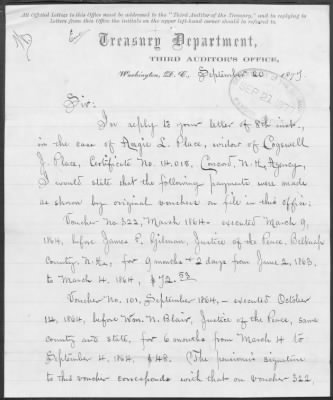 All official Letters to this Office must be addressed to the "Third Auditor of the Treasury," and in replying to
Letters from this Office the initials on the upper left-hand corner should be referred to.
Treasury Department,
THIRD AUDITOR'S OFFICE,
Washington, D.C., September 20 1877.
SEP 22 1877
Sir:
In reply to your letter of 8th inst.,
in the case of Angie L. Place, widow of Cogswell
J. Place, Certificate No. 14,018, Concord, N.H., Agency,
I would state that the following payments were made
as shown by original vouchers on file in this office:
Voucher No. 322, March 1864 - executed March 9,
1864, before James E. Gilman, Justice of the Peace, Belknap
County, N.H., for 9 months + 2 days from June 2, 1863,
to March 4, 1864, $72.53
Voucher No. 101, September 1864, - executed October
1st 1864, before Wm. N. Blair, Justice of the Peace, same
county and state, for 6 months from March 4 to
September 4, 1864, $48. The pensioner's signature
to this voucher corresponds with that on voucher 322,